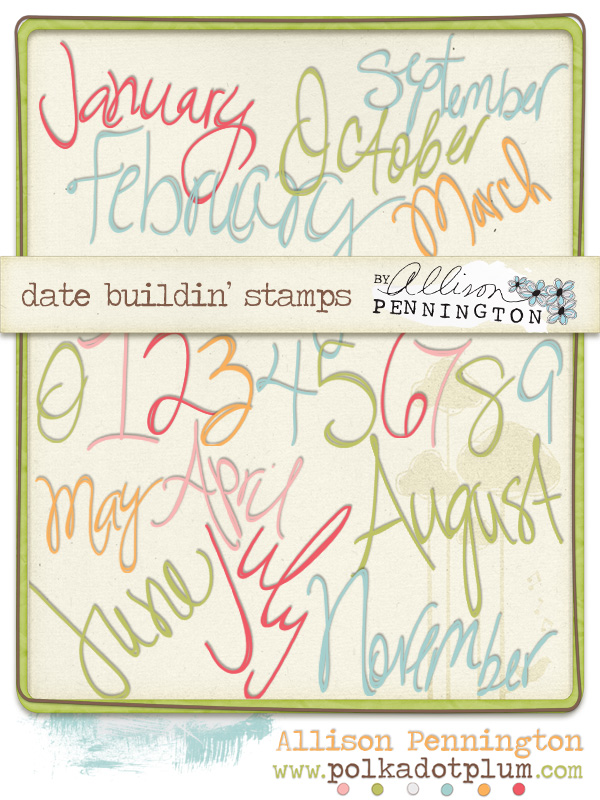 January
September
October
February
March
date buildin' stamps
BY Allison
PENNINGTON
0 1 2 3 4 5 6 7 8 9
May
April
August
July
June
November
Allison Pennington
www.polkadotplum.com